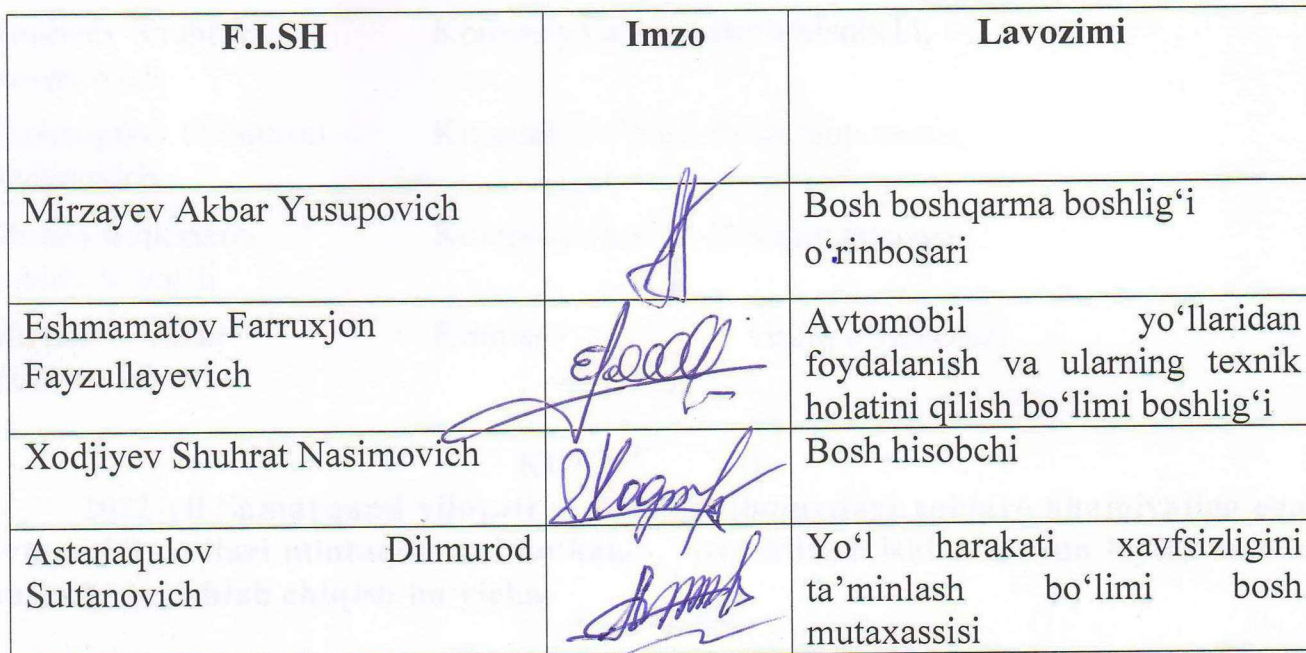 F.I.SH Imzo Lavozimi
Mirzayev Akbar Yusupovich
Bosh boshqarma boshlig‘i
o‘rinbosari
Eshmamatov Farruxjon
Fayzullayevich
Avtomobil yo‘llaridan
foydalanish va ularning texnik
holatini qilish bo‘limi boshlig‘i
Xodjiyev Shuhrat Nasimovich
Bosh hisobchi
Atanaqulov Dilmurod
Sultanovich
Yo‘l harakati xavfsizligini
ta’minlash bo‘limi bosh
mutaxassisi